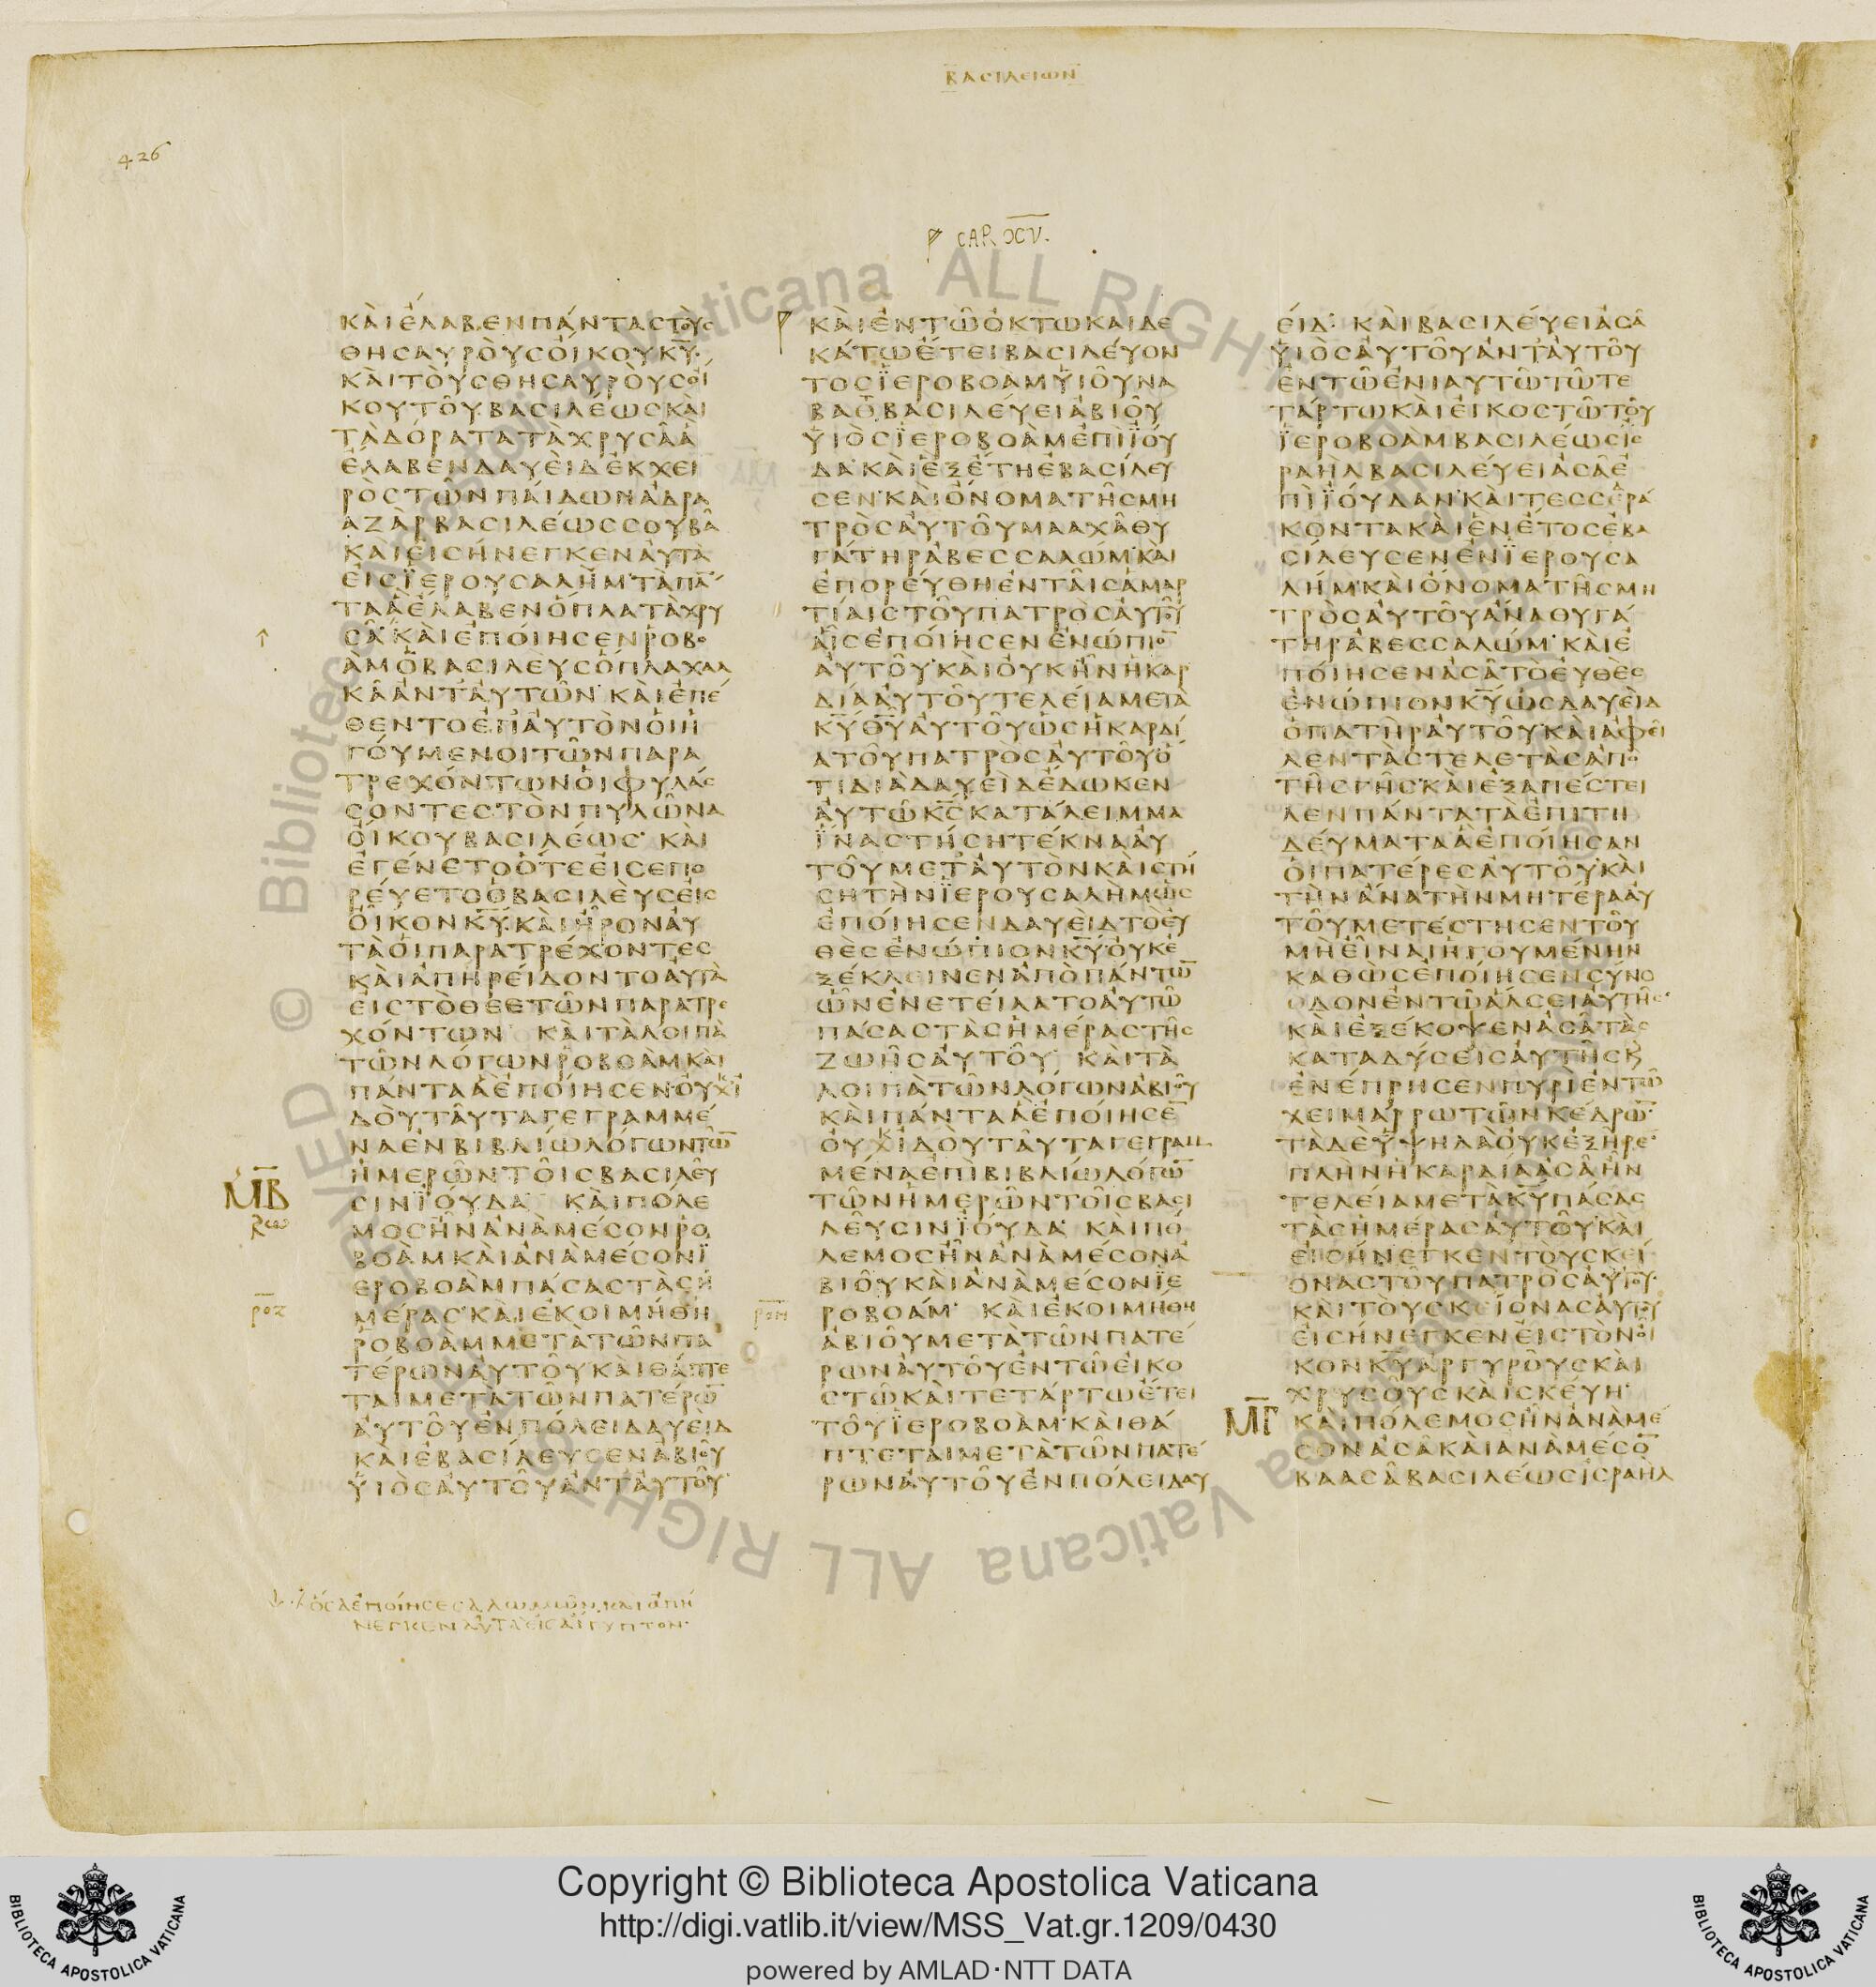 ΒΑϹΙΛΕΙΩΝ
426
CAP. XV.
ΚΑΙΕΛΑΒΕΝΠΑΝΤΑϹΤΟΥϹ
ΘΗϹΑΥΡΟΥϹΟΙΚΟΥΚΥ
ΚΑΙΤΟΥϹΘΗϹΑΥΡΟΥϹΟΙ
ΚΟΥΤΟΥΒΑϹΙΛΕΩϹΚΑΙ
ΤΑΔΟΡΑΤΑΤΑΧΡΥϹΑΑ
ΕΛΑΒΕΝΔΑΥΕΙΔΕΚΧΕΙ
ΡΟϹΤΩΝΠΑΙΔΩΝΑΔΡΑ
ΑΖΑΡΒΑϹΙΛΕΩϹϹΟΥΒΑ
ΚΑΙΕΙϹΗΝΕΓΚΕΝΑΥΤΑ
ΕΙϹΪΕΡΟΥϹΑΛΗΜΤΑΠΑ
ΤΑΑΕΛΑΒΕΝΟΠΛΑΤΑΧΡΥ
ϹΑΚΑΙΕΠΟΙΗϹΕΝΡΟΒΟ
ΑΜΟΒΑϹΙΛΕΥϹΟΠΛΑΧΑΛ
ΚΑΑΝΤΑΥΤΩΝ ΚΑΙΕΠΕ
ΘΕΝΤΟΕΠΑΥΤΟΝΟΙΗ
ΓΟΥΜΕΝΟΙΤΩΝΠΑΡΑ
ΤΡΕΧΟΝΤΩΝΟΙΦΥΛΑϹ
ϹΟΝΤΕϹΤΟΝΠΥΛΩΝΑ
ΟΙΚΟΥΒΑϹΙΛΕΩϹ ΚΑΙ
ΕΓΕΝΕΤΟΟΤΕΕΙϹΕΠΟ
ΡΕΥΕΤΟΟΒΑϹΙΛΕΥϹΕΙϹ
ΟΙΚΟΝΚΥΚΑΙΗΡΟΝΑΥ
ΤΑΟΙΠΑΡΑΤΡΕΧΟΝΤΕϹ
ΚΑΙΑΠΗΡΕΙΔΟΝΤΟΑΥΤΑ
ΕΙϹΤΟΘΕΕΤΩΝΠΑΡΑΤΡΕ
ΧΟΝΤΩΝ ΚΑΙΤΑΛΟΙΠΑ
ΤΩΝΛΟΓΩΝΡΟΒΟΑΜΚΑΙ
ΠΑΝΤΑΑΕΠΟΙΗϹΕΝΟΥΧΙ
ΔΟΥΤΑΥΤΑΓΕΓΡΑΜΜΕ
ΝΑΕΝΒΙΒΛΙΩΛΟΓΩΝΤΩ̅
ΗΜΕΡΩΝΤΟΙϹΒΑϹΙΛΕΥ
ΜΒ
ϹΙΝΪΟΥΔΑ ΚΑΙΠΟΛΕ
ΜΟϹΗΝΑΝΑΜΕϹΟΝΡΟ
ΒΟΑΜΚΑΙΑΝΑΜΕϹΟΝΪ
ΕΡΟΒΟΑΜΠΑϹΑϹΤΑϹΗ
ΡΟΖ
ΜΕΡΑϹΚΑΙΕΚΟΙΜΗΘΗ
ΡΟΒΟΑΜΜΕΤΑΤΩΝΠΑ
ΤΕΡΩΝΑΥΤΟΥΚΑΙΘΑΠΤΕ
ΤΑΙΜΕΤΑΤΩΝΠΑΤΕΡΩ̅
ΑΥΤΟΥΕΝΠΟΛΕΙΔΑΥΕΙΔ
ΚΑΙΕΒΑϹΙΛΕΥϹΕΝΑΒΙΟΥ
ΥΙΟϹΑΥΤΟΥΑΝΤΑΥΤΟΥ
ΟϹΑΕΠΟΙΗϹΕϹΑΛΩΜΩΝΚΑΙΑΠΗ
ΝΕΓΚΕΝΑΥΤΑΕΙϹΑΙΓΥΠΤΟΝ
ΚΑΙΕΝΤΩΟΚΤΩΚΑΙΔΕ
ΚΑΤΩΕΤΕΙΒΑϹΙΛΕΥΟΝ
ΤΟϹΪΕΡΟΒΟΑΜΥΙΟΥΝΑ
ΒΑΘΒΑϹΙΛΕΥΕΙΑΒΙΟΥ
ΥΙΟϹΪΕΡΟΒΟΑΜΕΠΙΪΟΥ
ΔΑΚΑΙΕΞΕΤΗΕΒΑϹΙΛΕΥ
ϹΕΝΚΑΙΟΝΟΜΑΤΗϹΜΗ
ΤΡΟϹΑΥΤΟΥΜΑΑΧΑΘΥ
ΓΑΤΗΡΑΒΕϹϹΑΛΩΜΚΑΙ
ΕΠΟΡΕΥΘΗΕΝΤΑΙϹΑΜΑΡ
ΤΙΑΙϹΤΟΥΠΑΤΡΟϹΑΥΤΟΥ
ΑΙϹΕΠΟΙΗϹΕΝΕΝΩΠΙΟ̅
ΑΥΤΟΥΚΑΙΟΥΚΗΝΗΚΑΡ
ΔΙΑΑΥΤΟΥΤΕΛΕΙΑΜΕΤΑ
ΚΥΘΥΑΥΤΟΥΩϹΗΚΑΡΔΙ
ΑΤΟΥΠΑΤΡΟϹΑΥΤΟΥΟ
ΤΙΔΙΑΔΑΥΕΙΔΕΔΩΚΕΝ
ΑΥΤΩΚϹΚΑΤΑΛΕΙΜΜΑ
ΪΝΑϹΤΗϹΗΤΕΚΝΑΑΥ
ΤΟΥΜΕΤΑΥΤΟΝΚΑΙϹΤΗ
ϹΗΤΗΝΪΕΡΟΥϹΑΛΗΜΩϹ
ΕΠΟΙΗϹΕΝΔΑΥΕΙΔΤΟΕΥ
ΘΕϹΕΝΩΠΙΟΝΚΥΟΥΚΕ
ΞΕΚΛΕΙΝΕΝΑΠΟΠΑΝΤΩ̅
ΩΝΕΝΕΤΕΙΛΑΤΟΑΥΤΩ
ΠΑϹΑϹΤΑϹΗΜΕΡΑϹΤΗϹ
ΖΩΗϹΑΥΤΟΥ ΚΑΙΤΑ
ΛΟΙΠΑΤΩΝΛΟΓΩΝΑΒΙΟΥ
ΚΑΙΠΑΝΤΑΑΕΠΟΙΗϹΕ̅
ΟΥΧΙΔΟΥΤΑΥΤΑΓΕΓΡΑΜ
ΜΕΝΑΕΠΙΒΙΒΛΙΩΛΟΓΩ̅
ΤΩΝΗΜΕΡΩΝΤΟΙϹΒΑϹΙ
ΛΕΥϹΙΝΪΟΥΔΑ ΚΑΙΠΟ
ΛΕΜΟϹΗΝΑΝΑΜΕϹΟΝΑ
ΒΙΟΥΚΑΙΑΝΑΜΕϹΟΝΪΕ
ΡΟΗ
ΡΟΒΟΑΜ ΚΑΙΕΚΟΙΜΗΘΗ
ΑΒΙΟΥΜΕΤΑΤΩΝΠΑΤΕ
ΡΩΝΑΥΤΟΥΕΝΤΩΕΙΚΟ
ϹΤΩΚΑΙΤΕΤΑΡΤΩΕΤΕΙ
ΤΟΥΪΕΡΟΒΟΑΜΚΑΙΘΑ
ΠΤΕΤΑΙΜΕΤΑΤΩΝΠΑΤΕ
ΡΩΝΑΥΤΟΥΕΝΠΟΛΕΙΔΑΥ
ΕΙΔ ΚΑΙΒΑϹΙΛΕΥΕΙΑϹΑ
ΥΙΟϹΑΥΤΟΥΑΝΤΑΥΤΟΥ
ΕΝΤΩΕΝΙΑΥΤΩΤΩΤΕ
ΤΑΡΤΩΚΑΙΕΙΚΟϹΤΩΤΟΥ
ΪΕΡΟΒΟΑΜΒΑϹΙΛΕΩϹΙϹ
ΡΑΗΛΒΑϹΙΛΕΥΕΙΑϹΑΕ
ΠΙΪΟΥΔΑΝΚΑΙΤΕϹϹΕΡΑ
ΚΟΝΤΑΚΑΙΕΝΕΤΟϹΕΒΑ
ϹΙΛΕΥϹΕΝΕΝΪΕΡΟΥϹΑ
ΛΗΜΚΑΙΟΝΟΜΑΤΗϹΜΗ
ΤΡΟϹΑΥΤΟΥΑΝΑΘΥΓΑ
ΤΗΡΑΒΕϹϹΑΛΩΜ ΚΑΙΕ
ΠΟΙΗϹΕΝΑϹΑΤΟΕΥΘΕϹ
ΕΝΩΠΙΟΝΚΥΩϹΔΑΥΕΙΔ
ΟΠΑΤΗΡΑΥΤΟΥΚΑΙΑΦΕΙ
ΛΕΝΤΑϹΤΕΛΕΤΑϹΑΠΟ
ΤΗϹΓΗϹΚΑΙΕΞΑΠΕϹΤΕΙ
ΛΕΝΠΑΝΤΑΤΑΕΠΙΤΗ
ΔΕΥΜΑΤΑΑΕΠΟΙΗϹΑΝ
ΟΙΠΑΤΕΡΕϹΑΥΤΟΥΚΑΙ
ΤΗΝΑΝΑΤΗΝΜΗΤΕΡΑΑΥ
ΤΟΥΜΕΤΕϹΤΗϹΕΝΤΟΥ
ΜΗΕΙΝΑΙΗΓΟΥΜΕΝΗΝ
ΚΑΘΩϹΕΠΟΙΗϹΕΝϹΥΝΟ
ΟΔΟΝΕΝΤΩΑΛϹΕΙΑΥΤΗϹ
ΚΑΙΕΞΕΚΟΨΕΝΑϹΑΤΑϹ
ΚΑΤΑΔΥϹΕΙϹΑΥΤΗϹΚ
ΕΝΕΠΡΗϹΕΝΠΥΡΙΕΝΤΩ
ΧΕΙΜΑΡΡΩΤΩΝΚΕΔΡΩ̅
ΤΑΔΕΥΨΗΛΑΟΥΚΕΞΗΡΕ
ΠΛΗΝΗΚΑΡΔΙΑΑϹΑΗΝ
ΤΕΛΕΙΑΜΕΤΑΚΥΠΑϹΑϹ
ΤΑϹΗΜΕΡΑϹΑΥΤΟΥΚΑΙ
ΕΙϹΗΝΕΓΚΕΝΤΟΥϹΚΕΙ
ΟΝΑϹΤΟΥΠΑΤΡΟϹΑΥΤΟΥ
ΚΑΙΤΟΥϹΚΕΙΟΝΑϹΑΥΤΟΥ
ΕΙϹΗΝΕΓΚΕΝΕΙϹΤΟΝΟΙ
ΚΟΝΚΥΑΡΓΥΡΟΥϹΚΑΙ
ΧΡΥϹΟΥϹΚΑΙϹΚΕΥΗ
ΜΓ
ΚΑΙΠΟΛΕΜΟϹΗΝΑΝΑΜΕ
ϹΟΝΑϹΑΚΑΙΑΝΑΜΕϹΟ̅
ΒΑΑϹΑΒΑϹΙΛΕΩϹΙϹΡΑΗΛ
© Biblioteca Apostolica Vaticana ALL RIGHTS RESERVED © Biblioteca Apostolica Vaticana ALL RIGHTS RESERVED
Copyright © Biblioteca Apostolica Vaticana
http://digi.vatlib.it/view/MSS_Vat.gr.1209/0430
powered by AMLAD·NTT DATA
BIBLIOTECA APOSTOLICA VATICANA
BIBLIOTECA APOSTOLICA VATICANA